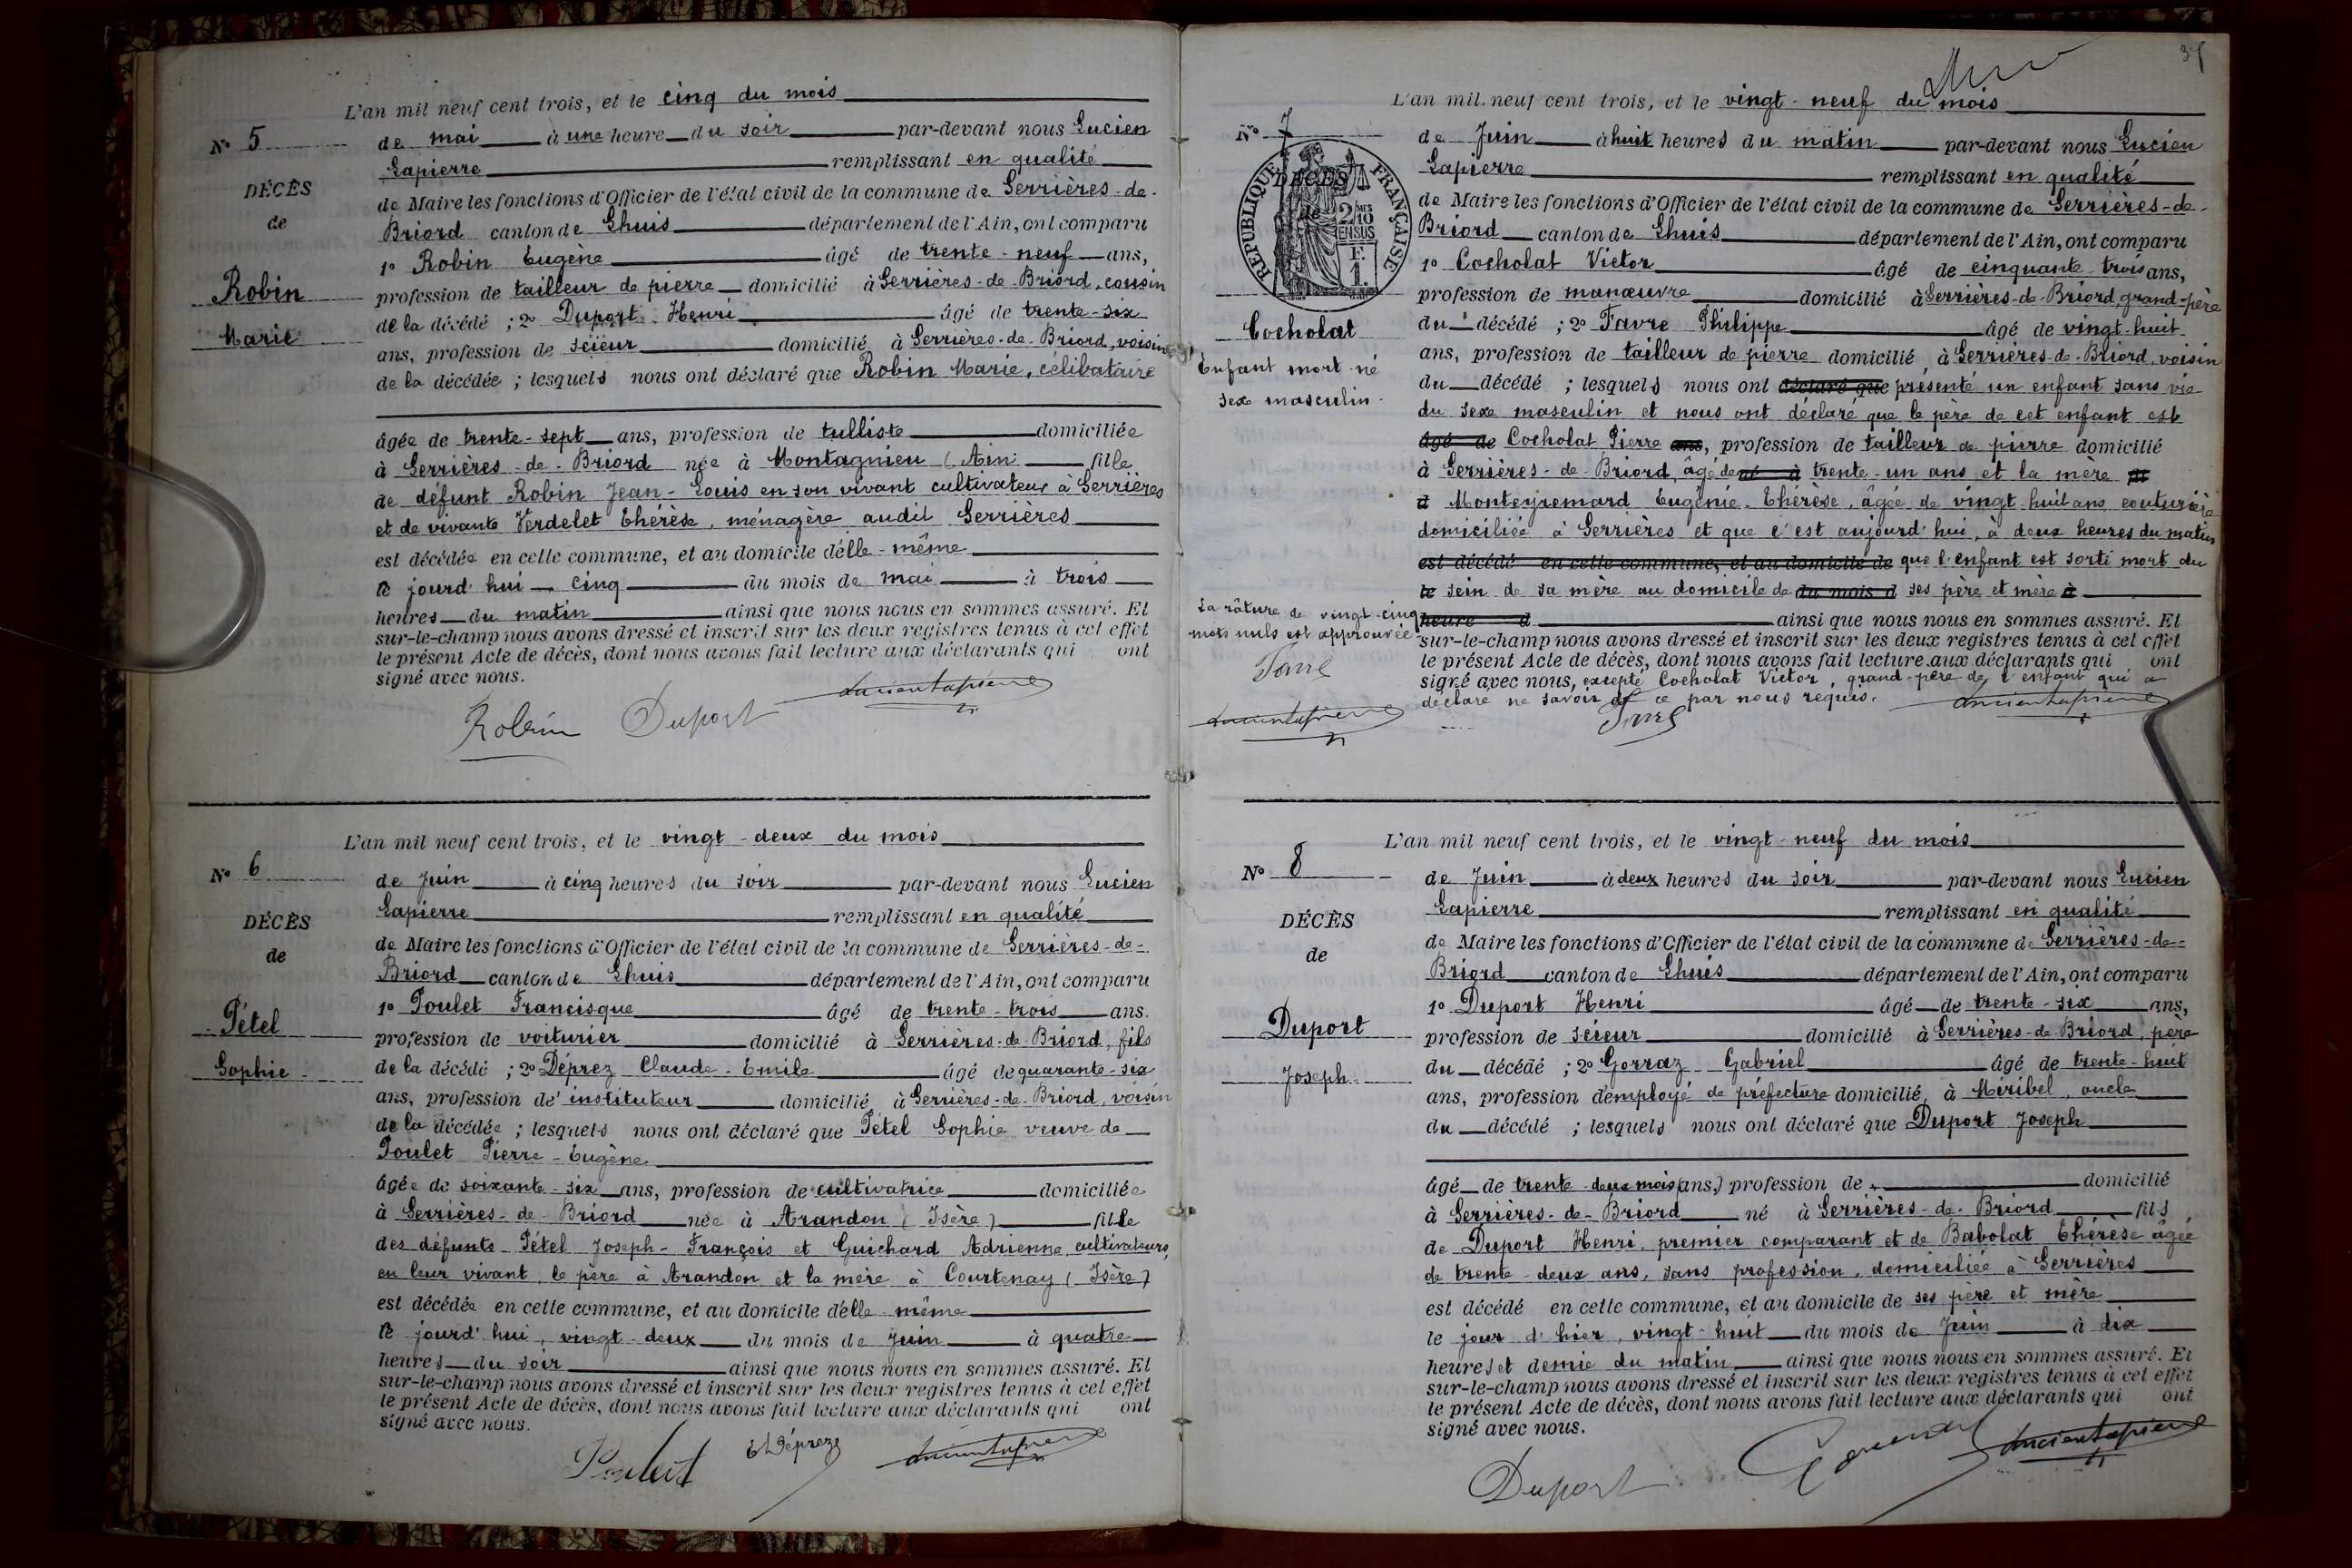 L'an mil neuf cent trois, et le cinq du mois
N° 5
de mai à une heure du soir par-devant nous Lucien
Lapierre remplissant en qualité
DÉCÈS
de Maire les fonctions d'Officier de l'état civil de la commune de Serrières-de-
de
Briord canton de Lhuis département de l'Ain, ont comparu
1° Robin Eugène âgé de trente-neuf ans,
Robin
profession de tailleur de pierre domicilié à Serrières-de-Briord, cousin
de la décédé ; 2° Duport Henri âgé de trente-six
Marie
ans, profession de scieur domicilié à Serrières-de-Briord, voisin
de la décédée ; lesquels nous ont déclaré que Robin Marie, célibataire
âgée de trente-sept ans, profession de tulliste domiciliée
à Serrières-de-Briord née à Montagnieu (Ain) fille
de défunt Robin Jean-Louis en son vivant cultivateur à Serrières
et de vivante Verdelet Thérèse, ménagère audit Serrières
est décédée en cette commune, et au domicile d'elle-même
le jourd'hui cinq du mois de mai à trois
heures du matin ainsi que nous nous en sommes assuré. Et
sur-le-champ nous avons dressé et inscrit sur les deux registres tenus à cet effet
le présent Acte de décès, dont nous avons fait lecture aux déclarants qui ont
signé avec nous.
Robin Duport Lucien Lapierre
L'an mil neuf cent trois, et le vingt-deux du mois
N° 6
de Juin à cinq heures du soir par-devant nous Lucien
Lapierre remplissant en qualité
DÉCÈS
de Maire les fonctions d'Officier de l'état civil de la commune de Serrières-de-
de
Briord canton de Lhuis département de l'Ain, ont comparu
1° Poulet Francisque âgé de trente-trois ans.
Pétel
profession de voiturier domicilié à Serrières-de-Briord, fils
de la décédé ; 2° Déprez Claude-Emile âgé de quarante-six
Sophie
ans, profession d'instituteur domicilié à Serrières-de-Briord, voisin
de la décédée ; lesquels nous ont déclaré que Pétel Sophie veuve de
Poulet Pierre-Eugène
âgée de soixante-six ans, profession de cultivatrice domiciliée
à Serrières-de-Briord née à Arandon (Isère) fille
des défunts Pétel Joseph-François et Guichard Adrienne, cultivateurs,
en leur vivant, le père à Arandon et la mère à Courtenay (Isère)
est décédée en cette commune, et au domicile d'elle-même
le jourd'hui, vingt-deux du mois de Juin à quatre
heures du soir ainsi que nous nous en sommes assuré. Et
sur-le-champ nous avons dressé et inscrit sur les deux registres tenus à cet effet
le présent Acte de décès, dont nous avons fait lecture aux déclarants qui ont
signé avec nous.
Poulet E Déprez Lucien Lapierre
37
L'an mil neuf cent trois, et le vingt-neuf du mois
N° 7
de Juin à huit heures du matin par-devant nous Lucien
Lapierre remplissant en qualité
RÉPUBLIQUE FRANÇAISE
DÉCÈS
de
2/10 MES
EN SUS
1 F.
de Maire les fonctions d'Officier de l'état civil de la commune de Serrières-de-
Briord canton de Lhuis département de l'Ain, ont comparu
1° Cocholat Victor âgé de cinquante-trois ans,
profession de manœuvre domicilié à Serrières-de-Briord, grand-père
Cocholat
du décédé ; 2° Favre Philippe âgé de vingt-huit
Enfant mort-né
ans, profession de tailleur de pierre domicilié à Serrières-de-Briord, voisin
sexe masculin.
du décédé ; lesquels nous ont déclaré que présenté un enfant sans vie
du sexe masculin et nous ont déclaré que le père de cet enfant est
âgé de Cocholat Pierre ans, profession de tailleur de pierre domicilié
à Serrières-de-Briord, âgé de né à trente-un ans et la mère fil
d Monteyremard Eugénie-Thérèse, âgée de vingt-huit ans couturière
domiciliée à Serrières et que c'est aujourd'hui, à deux heures du matin
est décédé en cette commune, et au domicile de que l'enfant est sorti mort du
le sein de sa mère au domicile de du mois d ses père et mère à
La râture de vingt-cinq
mots nuls est approuvée
heure d ainsi que nous nous en sommes assuré. Et
sur-le-champ nous avons dressé et inscrit sur les deux registres tenus à cet effet
le présent Acte de décès, dont nous avons fait lecture aux déclarants qui ont
signé avec nous, excepté Cocholat Victor, grand-père de l'enfant qui a
déclaré ne savoir de ce par nous requis.
Favre Lucien Lapierre
Favre Lucien Lapierre
L'an mil neuf cent trois, et le vingt-neuf du mois
N° 8
de Juin à deux heures du soir par-devant nous Lucien
Lapierre remplissant en qualité
DÉCÈS
de Maire les fonctions d'Officier de l'état civil de la commune de Serrières-de-
de
Briord canton de Lhuis département de l'Ain, ont comparu
1° Duport Henri âgé de trente-six ans,
Duport
profession de scieur domicilié à Serrières-de-Briord, père
du décédé ; 2° Gorraz Gabriel âgé de trente-huit
Joseph
ans, profession d'employé de préfecture domicilié à Miribel, oncle
du décédé ; lesquels nous ont déclaré que Duport Joseph
âgé de trente-deux mois (ans,) profession de domicilié
à Serrières-de-Briord né à Serrières-de-Briord fils
de Duport Henri, premier comparant et de Babolat Thérèse âgée
de trente-deux ans, sans profession, domiciliée à Serrières
est décédé en cette commune, et au domicile de ses père et mère
le jour d'hier, vingt-huit du mois de Juin à dix
heures et demie du matin ainsi que nous nous en sommes assuré. Et
sur-le-champ nous avons dressé et inscrit sur les deux registres tenus à cet effet
le présent Acte de décès, dont nous avons fait lecture aux déclarants qui ont
signé avec nous.
Duport Lucien Lapierre